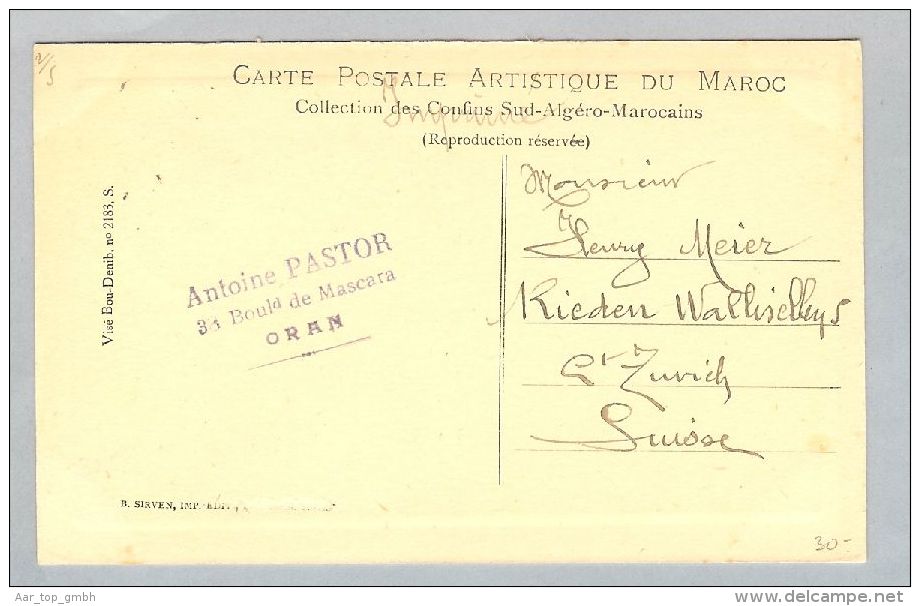 2/5
CARTE POSTALE ARTISTIQUE DU MAROC
Collection des Confins Sud-Algéro-Marocains
Imprimé
(Reproduction réservée)
Visé Bou-Denib. no 2183. S.
Antoine PASTOR
Bould de Mascara
ORAN
Monsieur
Henry Meier
Rieden Wallisellens
Ct Zurich
Suisse
B. SIRVEN, IMP.-EDIT
30-
Aar_top_gmbh
www.delcampe.net